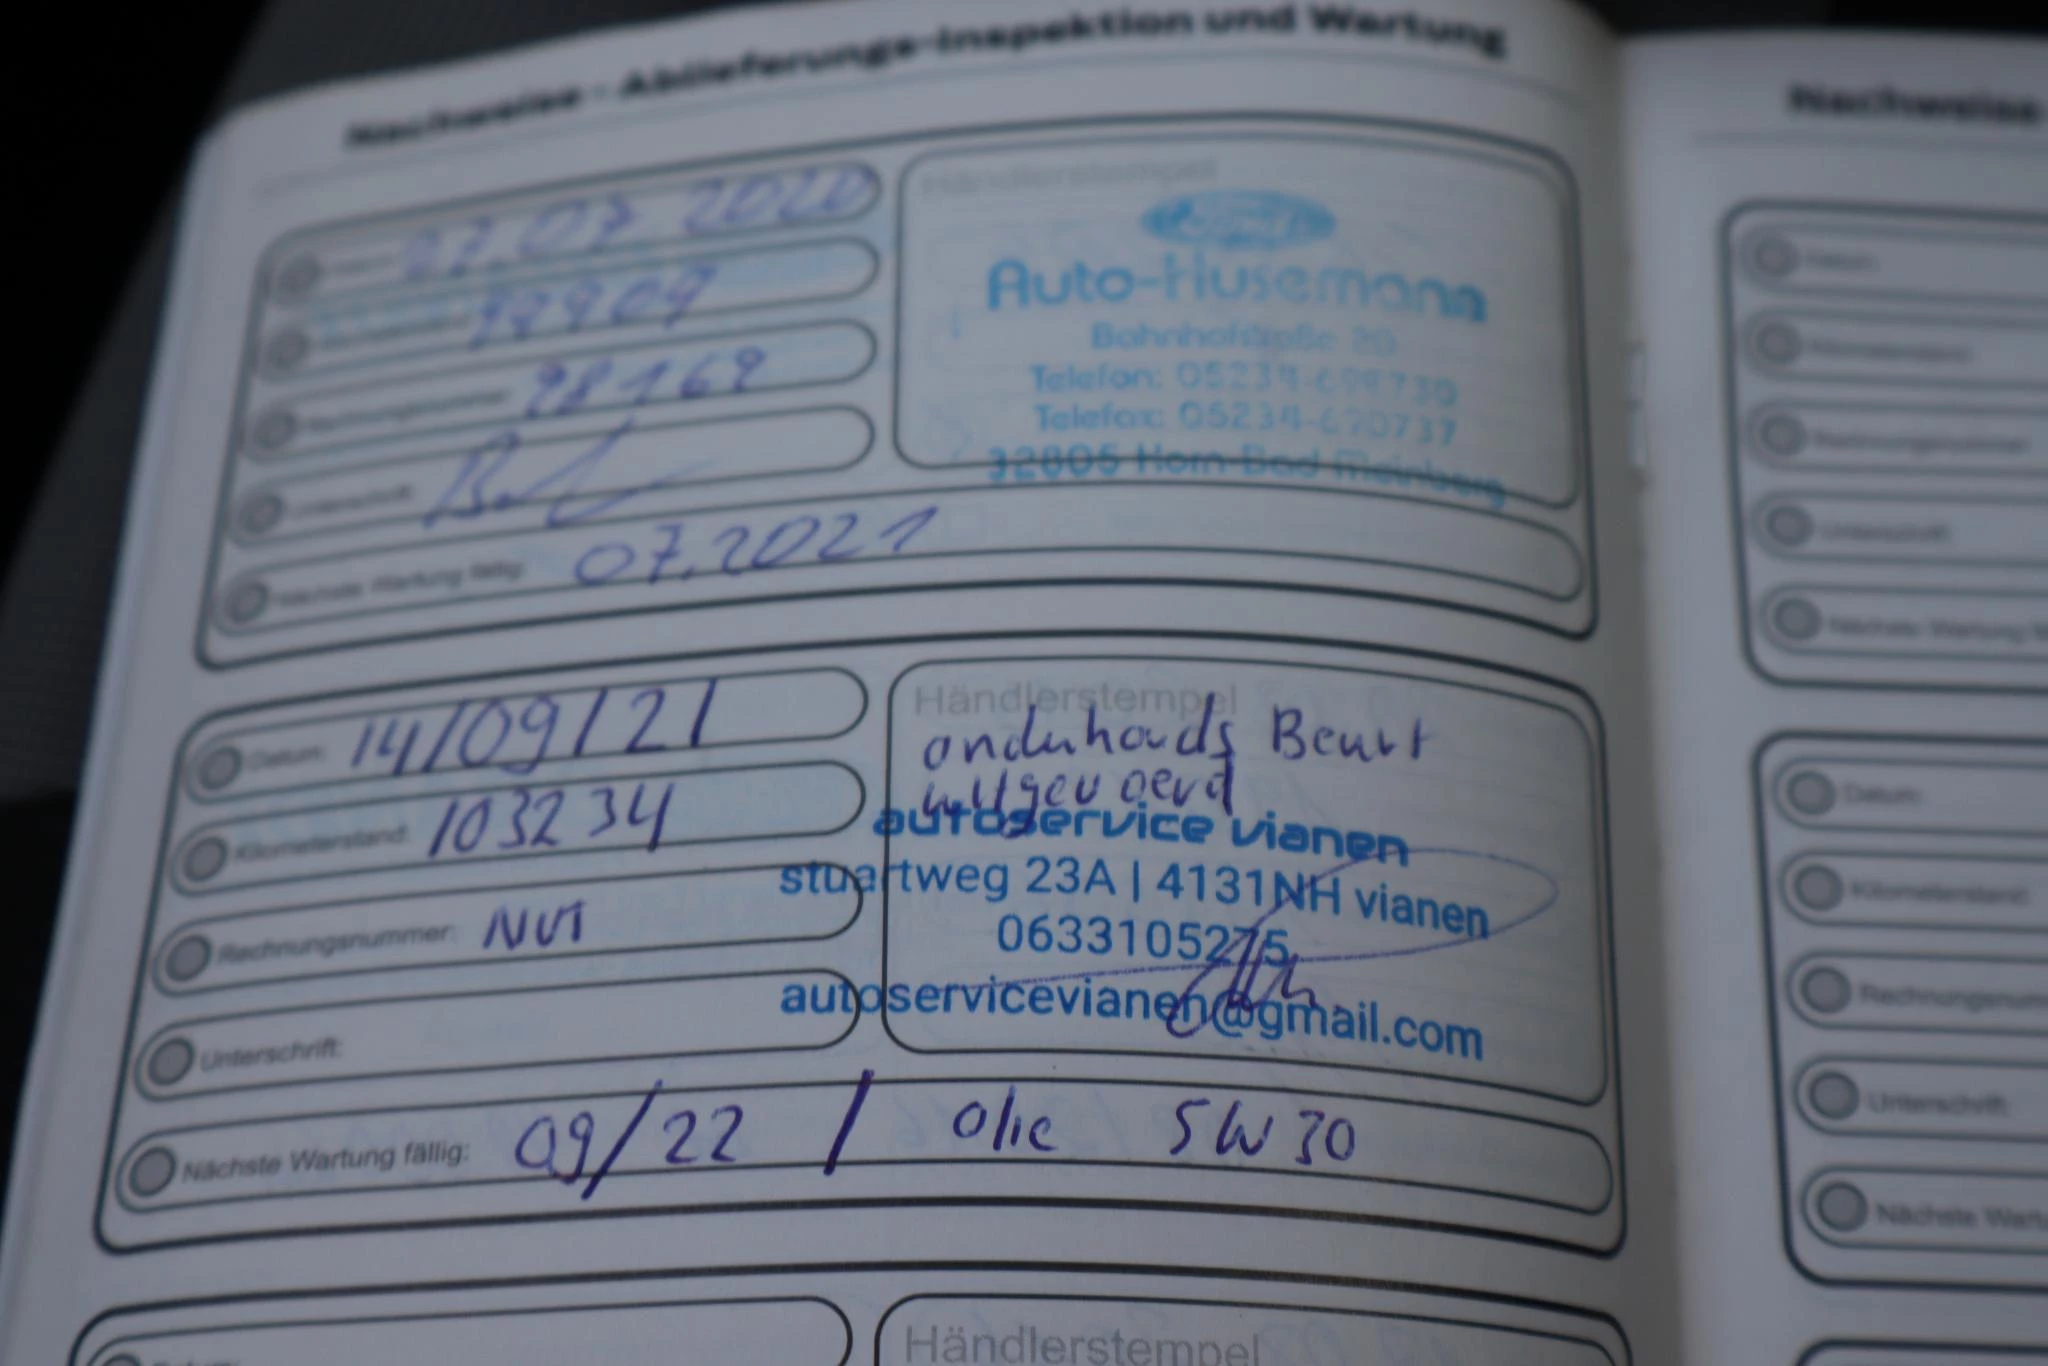 Nachweise - Ablieferungs-Inspektion und Wartung
Nachweise
Händlerstempel
07.07.2020
Ford
Auto-Husemann
Bahnhofstraße 20
Rechnungsnummer: 98169
Telefon: 05234-
Telefax: 05234-
Unterschrift:
32805 Horn-Bad Meinberg
Nächste Wartung fällig: 07.2021
Händlerstempel
Datum: 14/09/21
onderhouds Beurt
uitgevoerd
Kilometerstand: 103234
autoservice vianen
stuartweg 23A | 4131NH vianen
Rechnungsnummer: NVT
0633105275
autoservicevianen@gmail.com
Unterschrift:
Nächste Wartung fällig: 09/22 / Olie 5W30
Händlerstempel
Datum:
Datum:
Kilometerstand:
Rechnungsnummer
Unterschrift:
Nächste Wartung
Datum:
Kilometerstand:
Rechnungsnum
Unterschrift:
Nächste Wartu